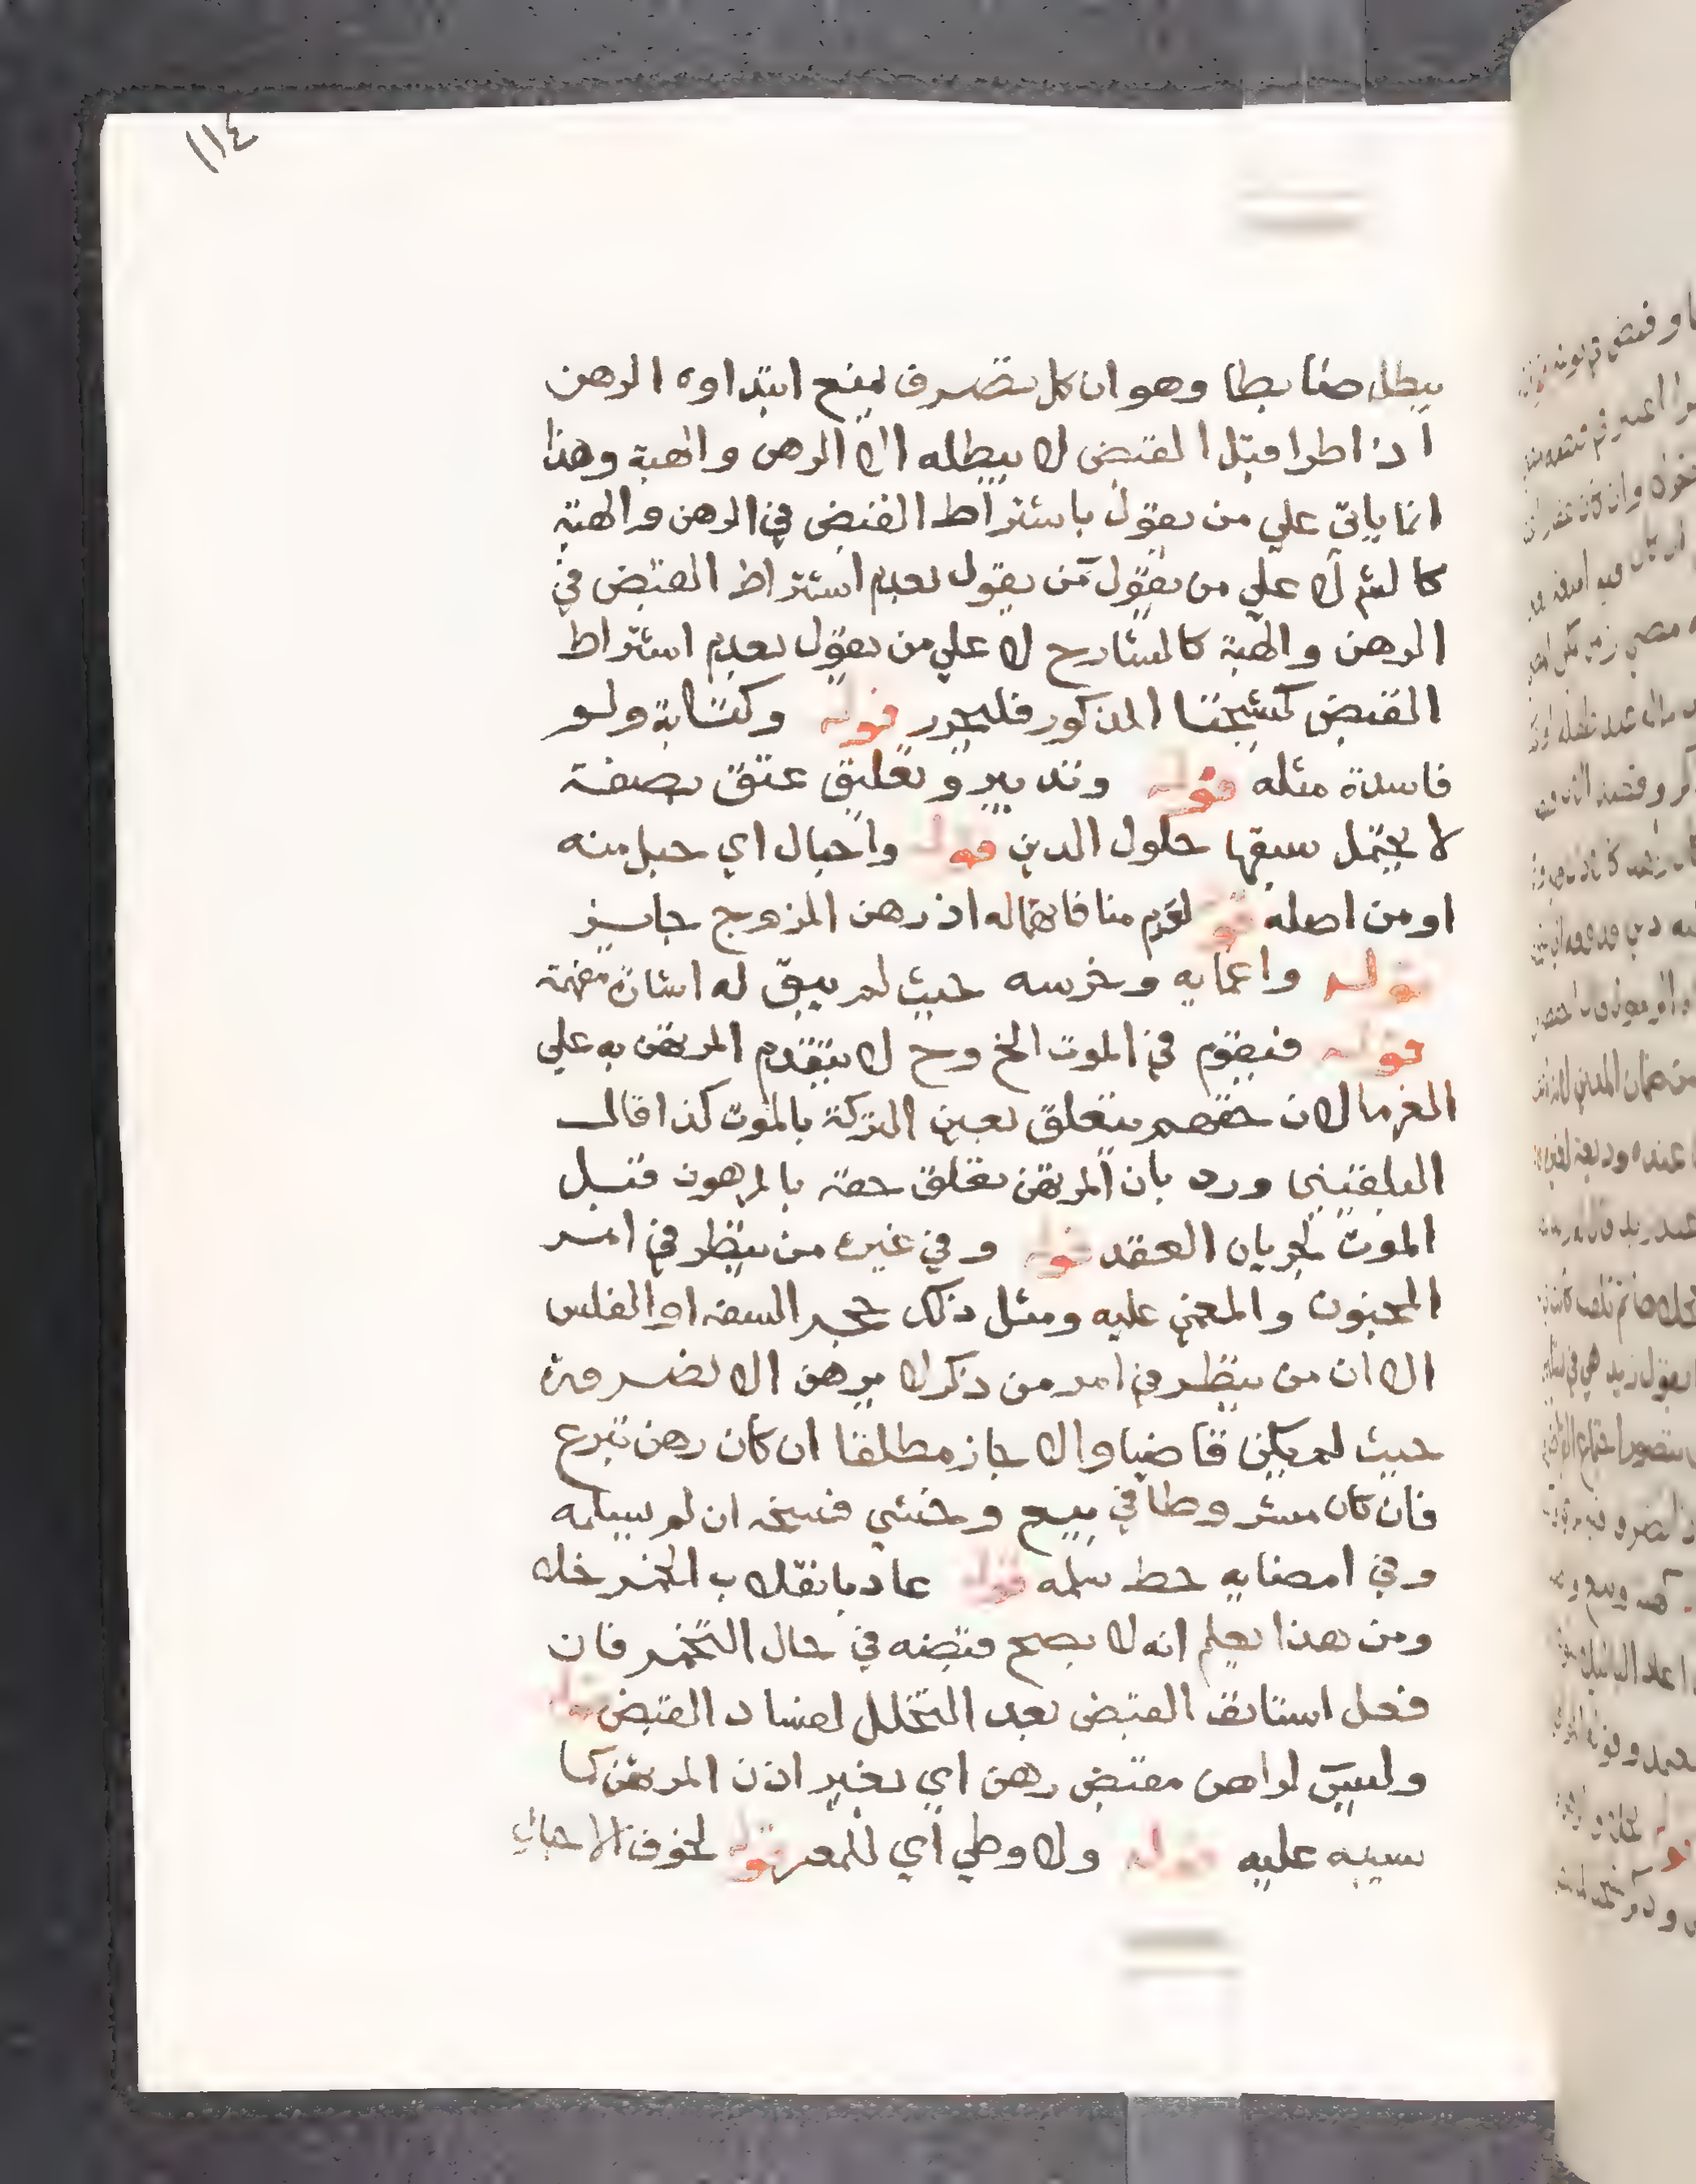 ١١٤
يبطل ضابطا وهو ان كل تصرف يمنع ابتداوه الرهن
اذا طرا قبل القبض لا يبطله الا الرهن والهبة وهذا
انما ياتي علي من يقول باشتراط القبض في الرهن والهبة
كا علي من يقول من يقول بعدم اشتراط القبض في
الرهن والهبة كالشارح لا علي من يقول بعدم اشتراط
القبض كشيخنا المذكور فليحرر قوله وكتابة ولو
فاسدة مثله قوله وتدبير وتعليق عتق بصفة
لا يحتمل سبقها حلول الدين قوله واحبال اي حبل منه
او من اصله قوله لعدم منافاتهما له اذ رهن المزوج جايز
قوله واغمايه وخرسه حيث لم يبق له اشارة مفهمة
قوله فيقوم في الموت الخ وح لا يتقدم المرتهن به علي
الغرما لان حقهم يتعلق بعين التركة بالموت كذا قال
البلقيني ورد بان المرتهن تعلق حقه بالمرهون قبل
الموت لجريان العقد قوله وفي غيره من ينظر في امر
المجنون والمغمي عليه ومثل ذلك حجر السفه او الفلس
الا ان من ينظر في امر من ذكر لا يرهن الا لضرورة
حيث لم يكن قاضيا والا جاز مطلقا ان كان رهن تبرع
فان كان مشروطا في بيع وخشي فسخه ان لم يسلمه
وفي امضايه حط سلمه قوله عاد بانقلاب الخمر خلا
ومن هذا يعلم انه لا يصح قبضه في حال التخمر فان
فعل استانف القبض بعد التخلل لفساد القبض قوله
وليس لراهن مقبض رهن اي بغير اذن المرتهن كما
سينبه عليه قوله ولا وطي اي للمعير قوله لخوف الاحبال